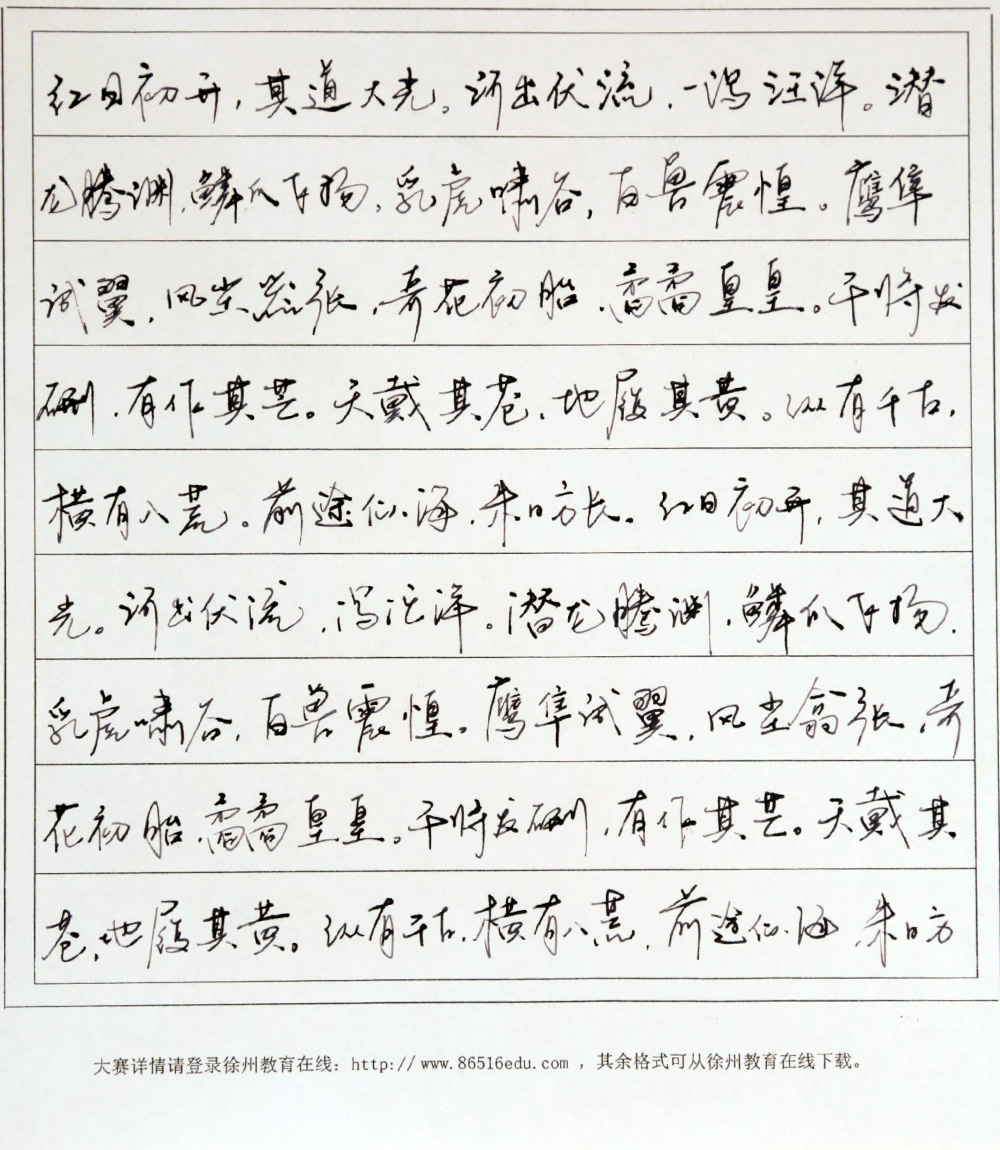 红日初升，其道大光。河出伏流，一泻汪洋。潜
龙腾渊，鳞爪飞扬，乳虎啸谷，百兽震惶。鹰隼
试翼，风尘翕张，奇花初胎，矞矞皇皇。干将发
硎，有作其芒。天戴其苍，地履其黄。纵有千古，
横有八荒。前途似海，来日方长。红日初升，其道大
光。河出伏流，泻汪洋。潜龙腾渊，鳞爪飞扬，
乳虎啸谷，百兽震惶。鹰隼试翼，风尘翕张，奇
花初胎，矞矞皇皇。干将发硎，有作其芒。天戴其
苍，地履其黄。纵有千古，横有八荒，前途似海，来日方
大赛详情请登录徐州教育在线：http://www.86516edu.com ，其余格式可从徐州教育在线下载。